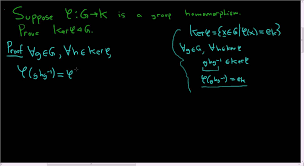 Suppose φ: G→K is a group homomorphism.
Prove Kerφ ◁ G.
Proof ∀g∈G, ∀h∈kerφ,
φ(ghg⁻¹) = φ
Kerφ = {x∈G | φ(x) = eₖ}
∀g∈G, ∀h∈kerφ
ghg⁻¹ ∈ kerφ
φ(ghg⁻¹) = eₖ